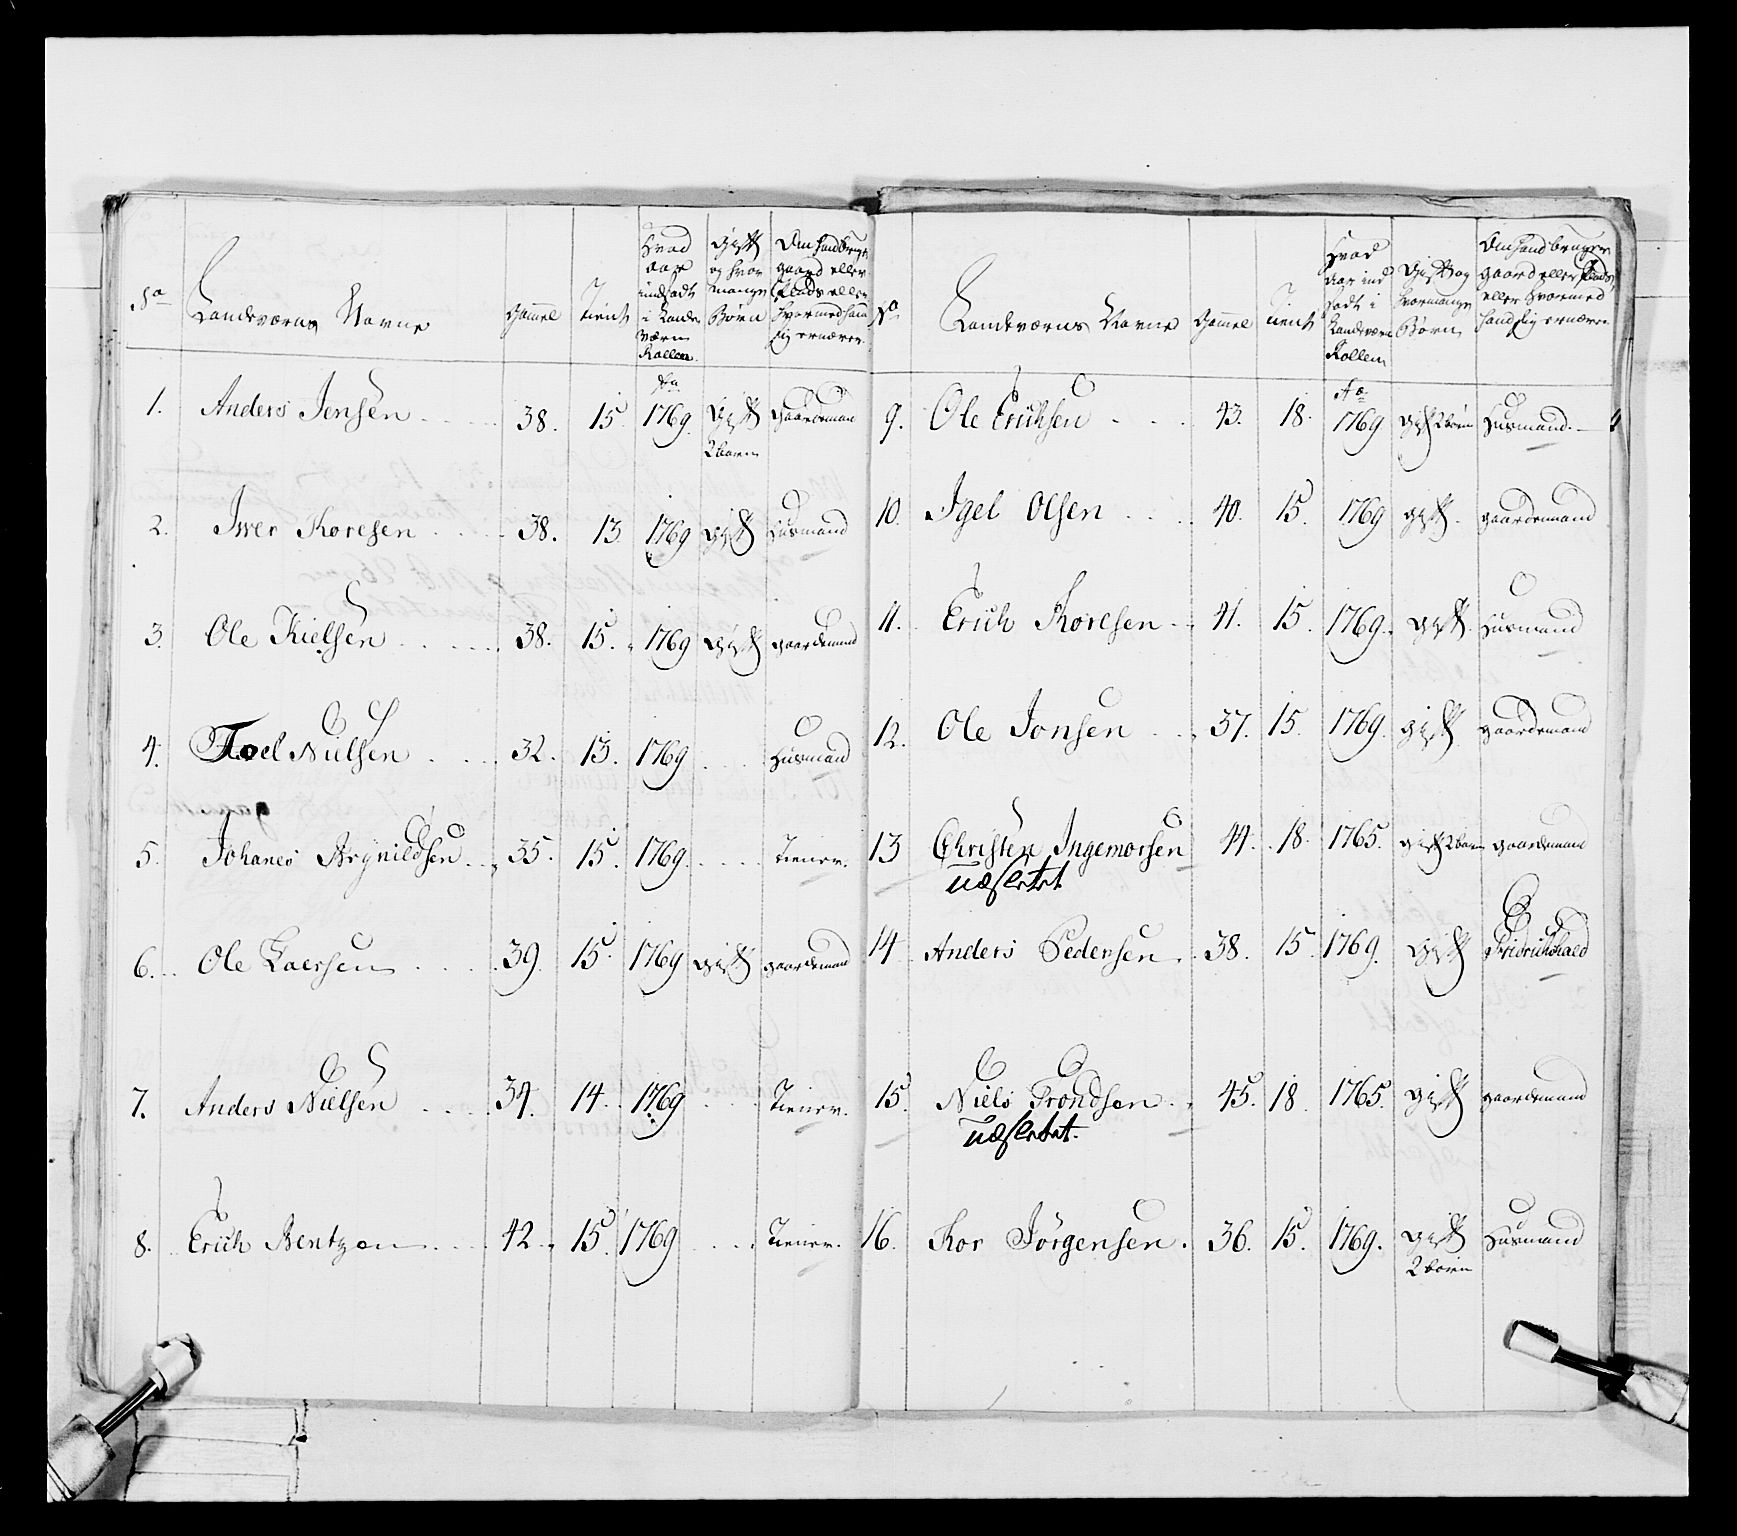 No
Landværns Navne
Gamel
Tient
Hvad
aar
indsadt
i Lande
Værn
Rollen.
Gift
og hvor
mange
Børn
Om hand bruger
gaard eller
Plads eller
hvormed hand
sig ernærer.
1. Anders Jensen 38. 15. Ao 1769 Gift 2 børn gaardemand
2. Iwer Koresen 38. 13. 1769 gift Husmand
3. Ole Kielsen 38. 15. 1769 gift gaardemand
4. Joel Nielsen 32. 13. 1769 Husmand
5. Johanes Argnildsen 35. 15. 1769. Tiener.
6. Ole Laersen 39. 15. 1769 gift gaardemand
7. Anders Nielsen 34. 14. 1769 Tiener.
8. Erich Bentzen 42. 15. 1769 Tiener.
No
Landværns Navne
Gamel
Tient
Hvad
Aar ind
sadt i
Landeværn
Rollen
Gift og
hvormange
Børn
Om hand bruger
gaard eller Plads,
eller hvormed
hand sig ernærer
9. Ole Erichsen 43. 18. Ao 1769 gift 2 børn Husmand.
10. Igel Olsen 40. 15. 1769 gift. gaardemand
11. Erich Koresen 41. 15. 1769. gift. Husmand
12. Ole Jonsen 37. 15. 1769. gift gaardemand
13 Christen Ingemorsen 44. 18. 1765. gift 2 børn gaardemand
udsletet
14 Anders Pedersen. 38. 15. 1769. Gift Fridrichshald
15. Niels Trondsen 45. 18 1765. gift gaardemand
udsletet.
16. Kor Jörgensen. 36. 15. 1769. gift Husmand
2 børn